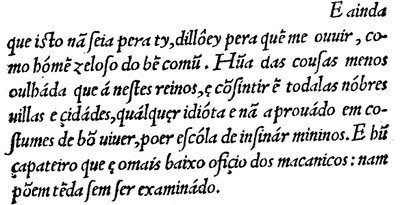 E ainda
que isto nã seia pera ty, dillôey pera quẽ me ouuir, co-
mo hómẽ zeloso do bẽ comũ. Hũa das cousas menos
oulháda que á nestes reinos, ę cõsintir ẽ todalas nóbres
uillas e çidádes, quálquęr idióta e nã aprouádo em co-
stumes de bõ uiuer, poer escóla de insinár mininos. E hũ
çapateiro que ę o mais baixo ofiçio dos macanicos: nam
põem tẽda sem ser examinádo.